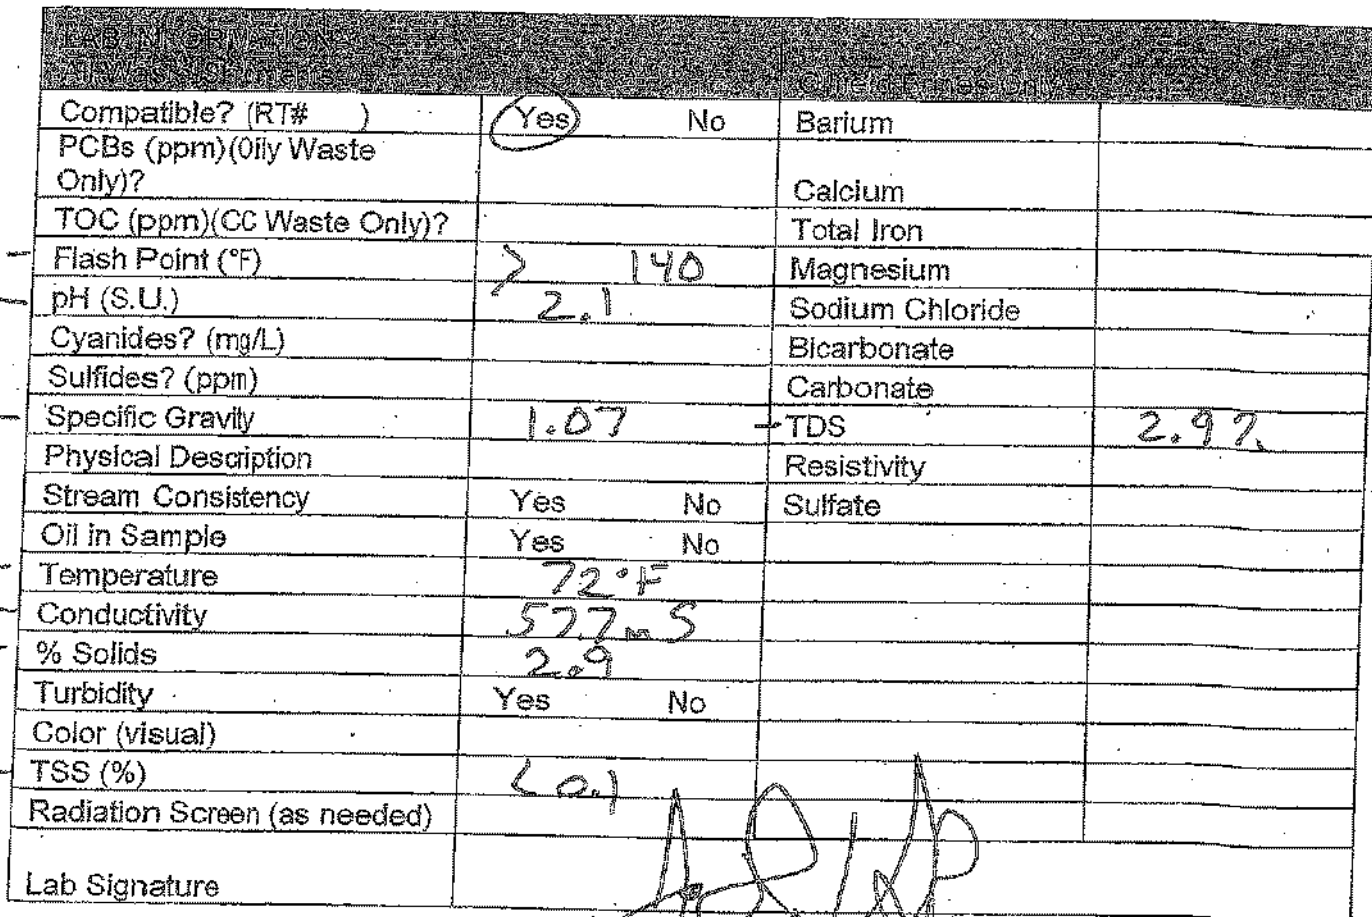 LAB INFORMATION
All Waste Shipments
Oilfield Brines Only
Compatible? (RT# ) Yes No Barium
PCBs (ppm)(Oily Waste
Only)? Calcium
TOC (ppm)(CC Waste Only)? Total Iron
Flash Point (°F) > 140 Magnesium
pH (S.U.) 2.1 Sodium Chloride
Cyanides? (mg/L) Bicarbonate
Sulfides? (ppm) Carbonate
Specific Gravity 1.07 TDS 2.9%
Physical Description Resistivity
Stream Consistency Yes No Sulfate
Oil in Sample Yes No
Temperature 72°F
Conductivity 577mS
% Solids 2.9
Turbidity Yes No
Color (visual)
TSS (%) <0.1
Radiation Screen (as needed)
Lab Signature